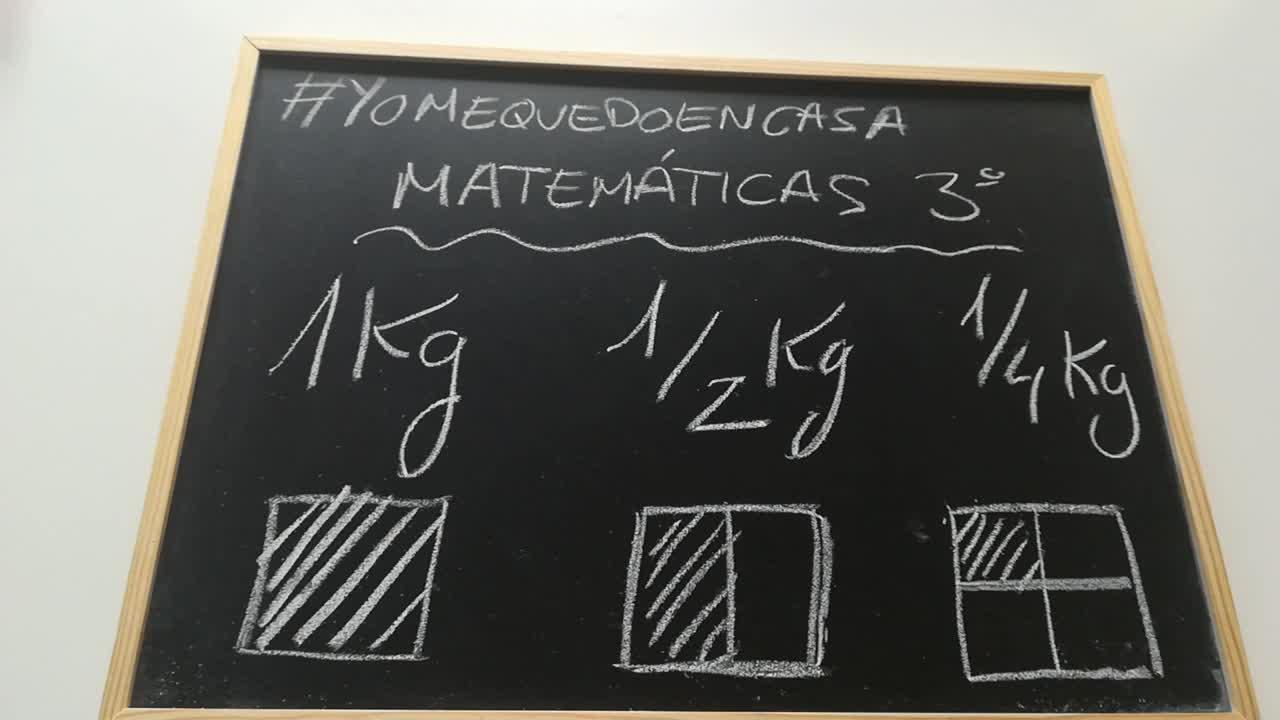 #YOMEQUEDOENCASA
MATEMÁTICAS 3º
1Kg 1/2 Kg 1/4 Kg